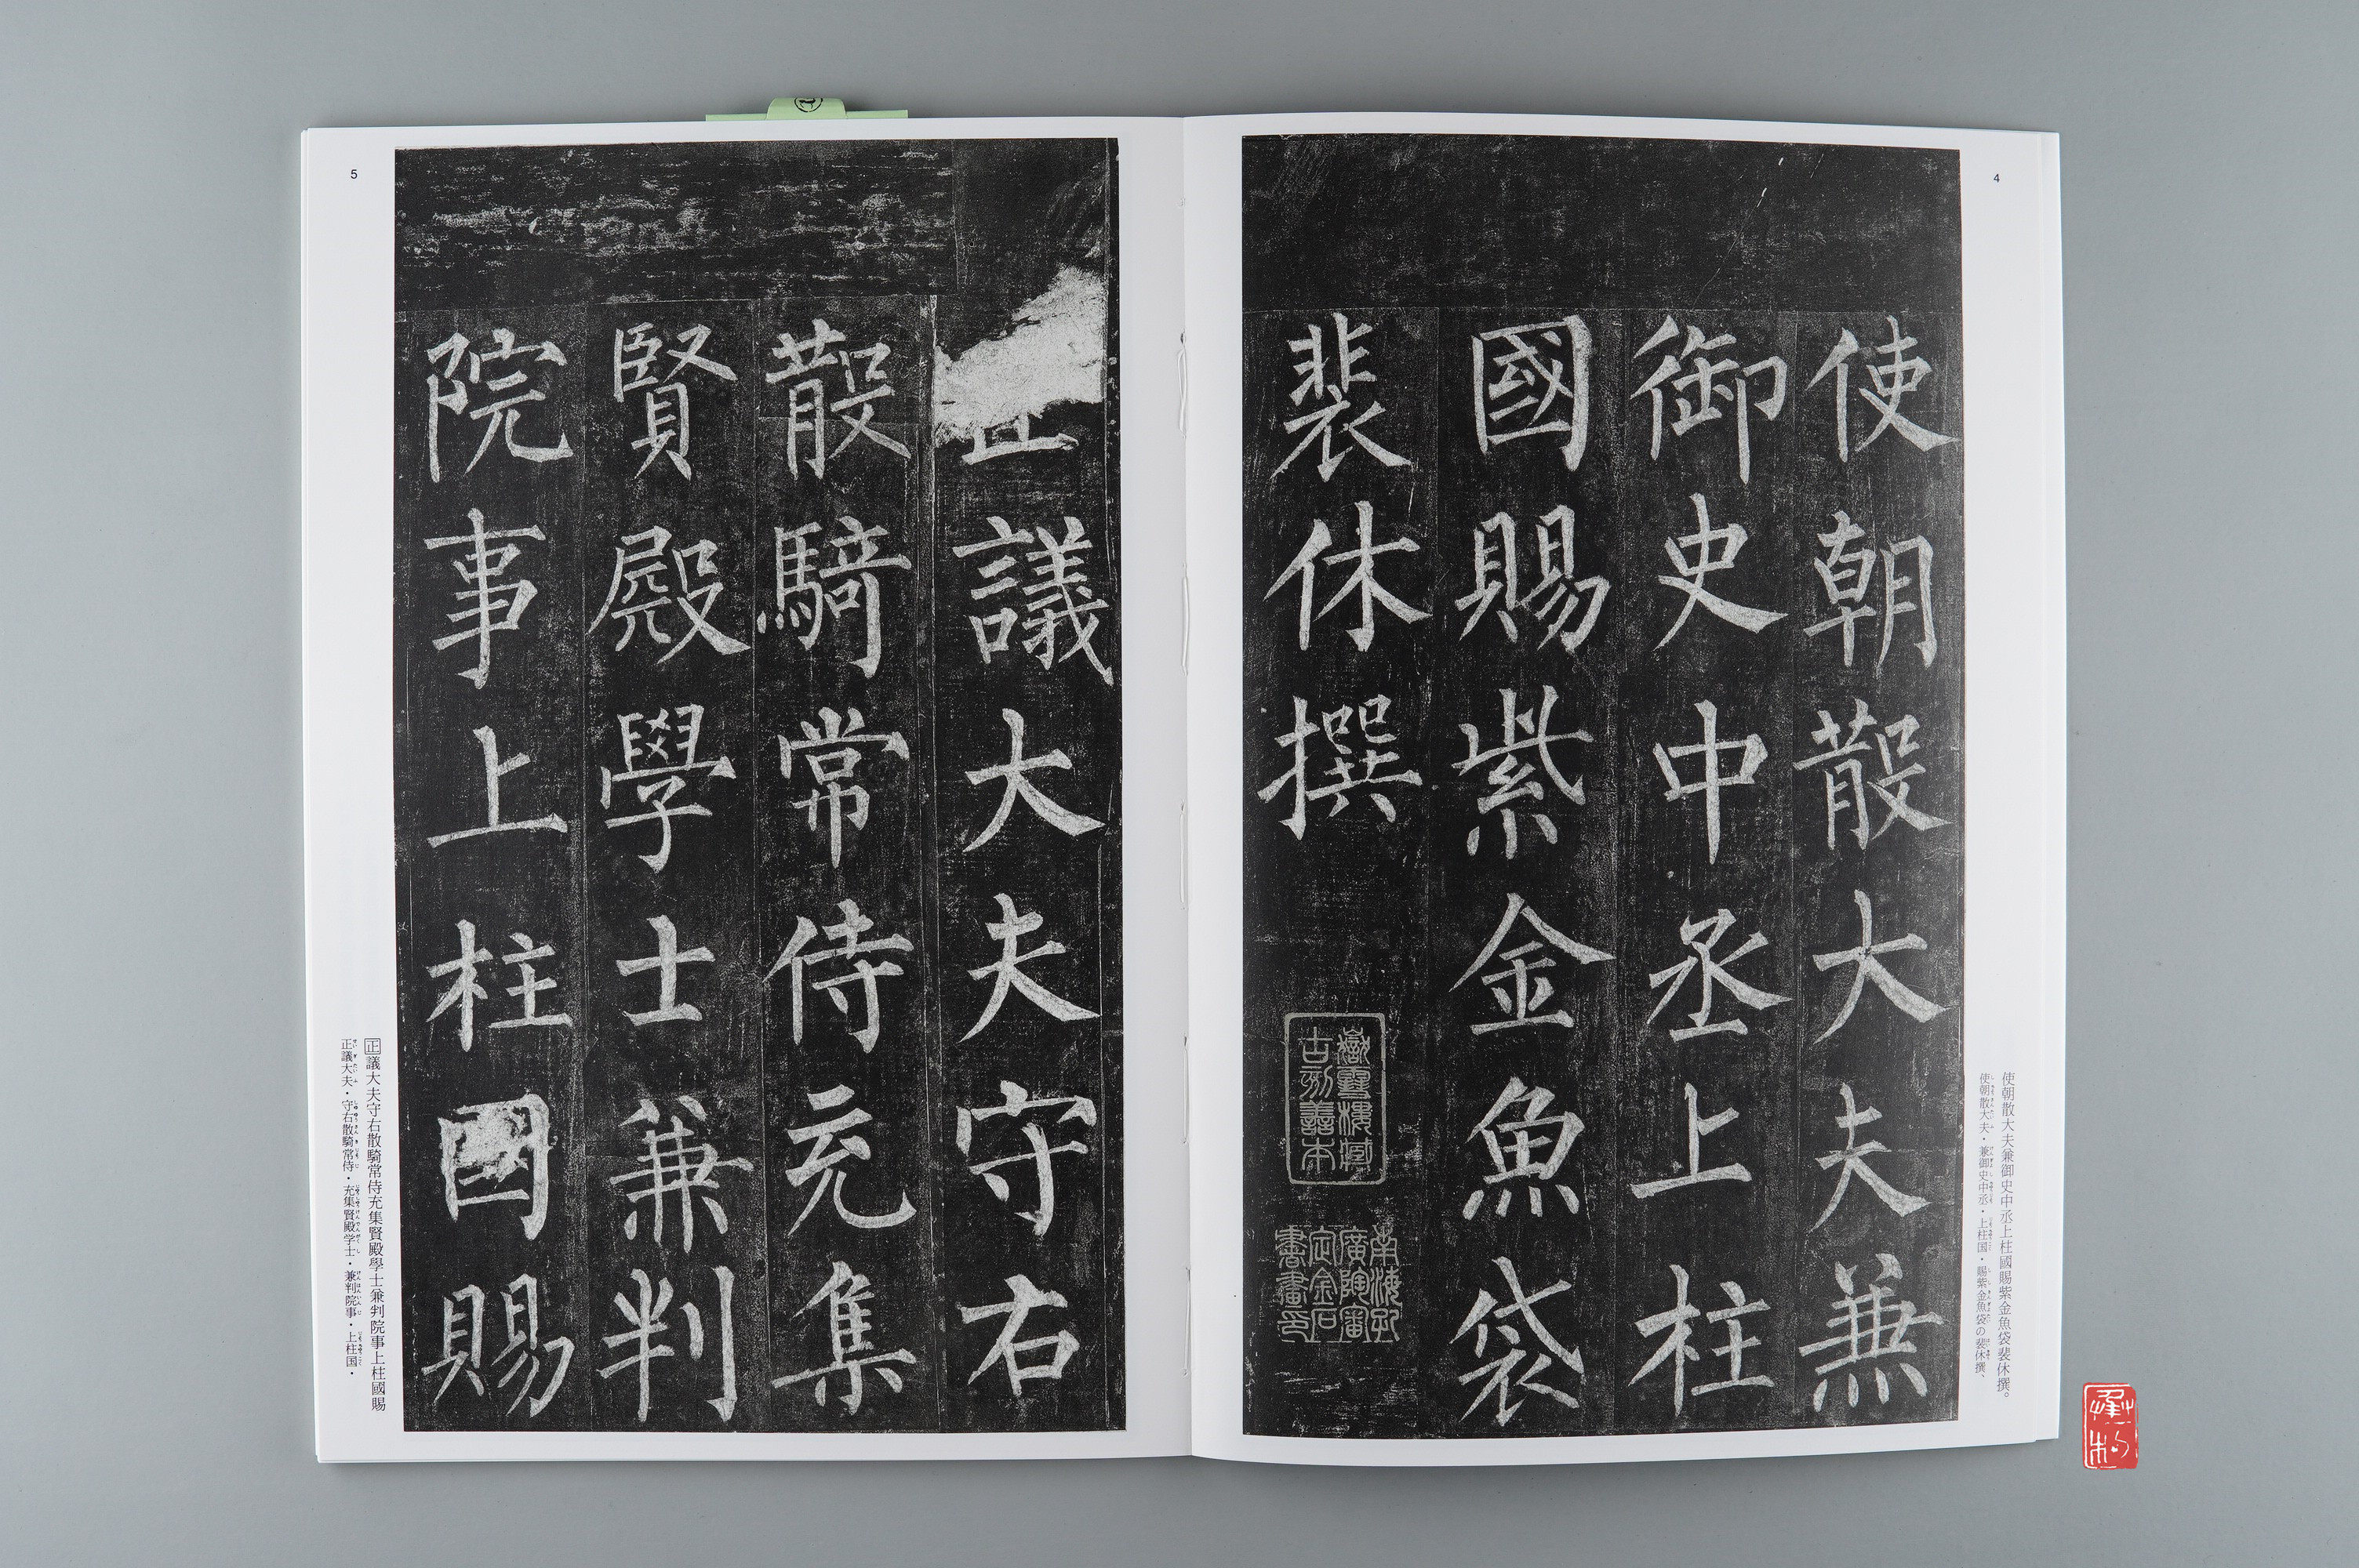 4
使朝散大夫兼
御史中丞上柱
國賜紫金魚袋
裴休撰
嶽雪樓藏
古刻善本
南海孔
廣陶審
定金石
書畫印
使朝散大夫兼御史中丞上柱國賜紫金魚袋裴休撰。
使朝散大夫・兼御史中丞・上柱国・賜紫金魚袋の裴休撰、
5
正議大夫守右
散騎常侍充集
賢殿學士兼判
院事上柱國賜
正議大夫守右散騎常侍充集賢殿學士兼判院事上柱國賜
正議大夫・守右散騎常侍・充集賢殿学士・兼判院事・上柱国・